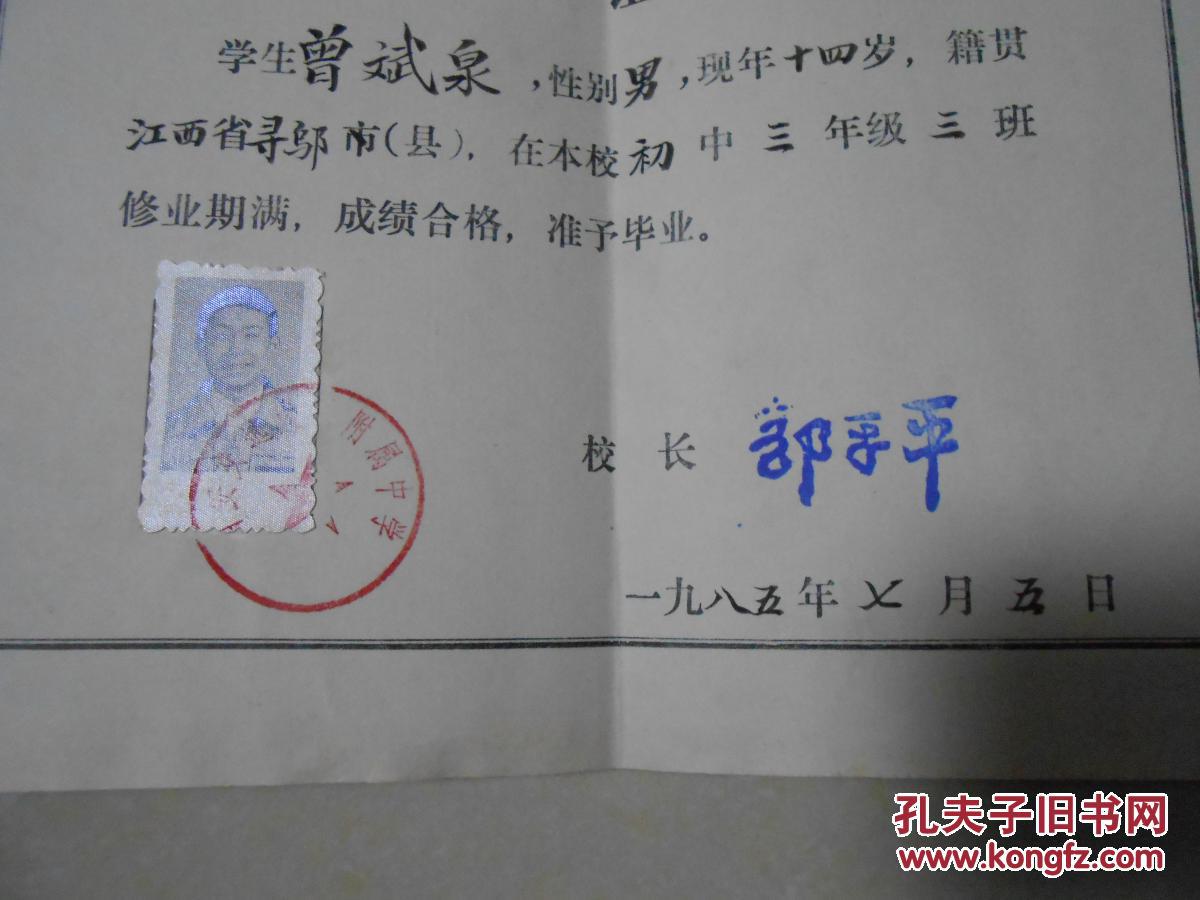 学生曾斌泉，性别男，现年十四岁，籍贯
江西省寻邬市(县)，在本校初中三年级三班
修业期满，成绩合格，准予毕业。
中学
校长 郭平平
一九八五年七月五日
孔夫子旧书网
www.kongfz.com